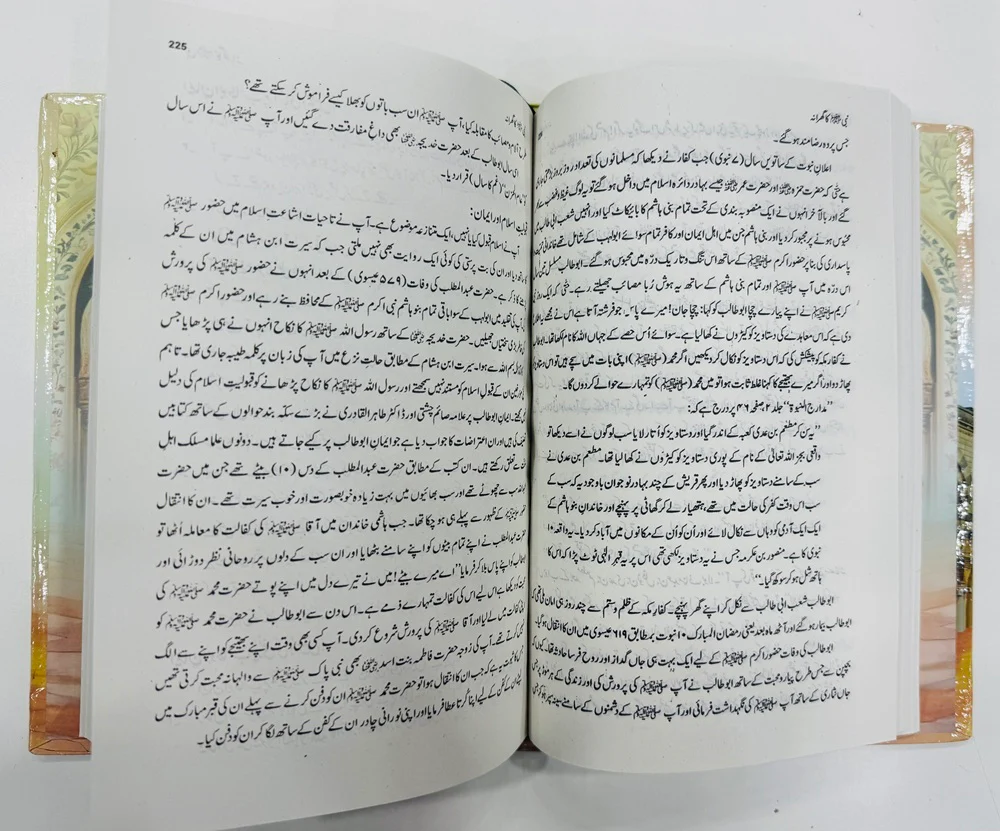 نبی ﷺ کا گھرانہ
جس پر وہ رضامند ہو گئے۔
اعلانِ نبوت کے ساتویں سال (۷ نبوی) جب کفار نے دیکھا کہ مسلمانوں کی تعداد روز بروز
ہے حتیٰ کہ حضرت حمزہ ؓ اور حضرت عمر ؓ جیسے بہادر دائرہ اسلام میں داخل ہو گئے تو یہ لوگ غیظ و غضب سے
گئے اور بالآخر انہوں نے ایک منصوبہ بندی کے تحت تمام بنی ہاشم کا بائیکاٹ کیا اور انہیں شعب ابی طالب
محبوس ہونے پر مجبور کر دیا اور بنی ہاشم جن میں اہل ایمان اور کافر تمام سوائے ابولہب کے شامل تھے خاندانی
پاسداری کی بنا پر حضور اکرم ﷺ کے ساتھ اس تنگ و تاریک درّہ میں محبوس ہو گئے۔ ابوطالب مسلسل تین سال
اس درہ میں آپ ﷺ اور تمام بنی ہاشم کے ساتھ یہ ہوش رُبا مصائب جھیلتے رہے۔ حتیٰ کہ ایک روز
کریم ﷺ نے اپنے پیارے چچا ابوطالب کو کہا: چچا جان! میرے پاس جو فرشتہ آتا ہے اس نے مجھے یہ اطلاع
دی ہے کہ اس معاہدے کی دستاویز کو کیڑوں نے کھا لیا ہے۔ سوائے اُس حصے کے جہاں اللہ کا نام لکھا تھا۔
نے کفار مکہ کو پیشکش کی کہ اس دستاویز کو نکال کر دیکھیں اگر محمد (ﷺ) اپنی بات میں سچے ہیں تو اس دستاویز
پھاڑ دو اور اگر میرے بھتیجے کا کہنا غلط ثابت ہوا تو میں محمد (ﷺ) کو تمہارے حوالے کر دوں گا۔
”مدارج النبوۃ“ جلد ۲ صفحہ ۴۶ پر درج ہے کہ:
”یہ سن کر مطعم بن عدی کعبہ کے اندر گیا اور دستاویز کو اُتار لایا سب لوگوں نے اسے دیکھا تو
واقعی بجز اللہ تعالیٰ کے نام کے پوری دستاویز کو کیڑوں نے کھا لیا تھا۔ مطعم بن عدی نے
سب کے سامنے دستاویز کو پھاڑ دیا اور پھر قریش کے چند بہادر نوجوان باوجود یہ کہ سب کے
سب اس وقت کفر کی حالت میں تھے ہتھیار لے کر گھاٹی پر پہنچے اور خاندانِ بنو ہاشم کے
ایک ایک آدمی کو وہاں سے نکال لائے اور اُن کو اُن کے مکانوں میں آباد کر دیا۔ یہ واقعہ ۱۰
نبوی کا ہے۔ منصور بن عکرمہ جس نے یہ دستاویز لکھی تھی اس پر یہ قہرِ الٰہی ٹوٹ پڑا کہ اس کا
ہاتھ شل ہو کر سوکھ گیا۔“
ابوطالب شعب ابی طالب سے نکل کر اپنے گھر پہنچے۔ کفار مکہ کے ظلم و ستم سے چند روز ہی امان ملی تھی کہ
ابوطالب بیمار ہو گئے اور آٹھ ماہ بعد یعنی رمضان المبارک ۱۰ نبوت بمطابق ۶۱۹ عیسوی میں ان کا انتقال ہو گیا۔
ابوطالب کی وفات حضور اکرم ﷺ کے لیے ایک بہت ہی جاں گداز اور روح فرسا حادثہ تھا۔
بچپن سے جس طرح پیار و محبت کے ساتھ ابوطالب نے آپ ﷺ کی پرورش کی اور زندگی کے ہر موڑ
جاں نثاری کے ساتھ آپ ﷺ کی نگہداشت فرمائی اور آپ ﷺ کے دشمنوں کے سامنے سینہ سپر ہو کر
225
نبی ﷺ کا گھرانہ
طرح آلام و مصائب کا مقابلہ کیا، آپ ﷺ ان سب باتوں کو بھلا کیسے فراموش کر سکتے تھے؟
اسی سال ابوطالب کے بعد حضرت خدیجہ ؓ بھی داغِ مفارقت دے گئیں اور آپ ﷺ نے اس سال
(غم کا سال) قرار دیا۔
قبولیتِ اسلام اور ایمان:
آپ نے اسلام قبول کیا یا نہیں، ایک متنازعہ موضوع ہے۔ آپ نے تاحیات اشاعتِ اسلام میں حضور ﷺ
ساتھ دیا اور ان کی بت پرستی کی کوئی ایک روایت بھی نہیں ملتی جب کہ سیرت ابن ہشام میں ان کے کلمہ
کا ذکر ہے۔ حضرت عبدالمطلب کی وفات (۵۷۹ عیسوی) کے بعد انہوں نے حضور ﷺ کی پرورش
کی تقلید میں ابولہب کے سوا باقی تمام بنو ہاشم نبی اکرم ﷺ کے محافظ بنے رہے اور حضور اکرم ﷺ
سختیاں جھیلیں۔ حضرت خدیجہ ؓ کے ساتھ رسول اللہ ﷺ کا نکاح انہوں نے ہی پڑھایا جس
بسم اللہ سے ہوا۔ سیرت ابن ہشام کے مطابق حالتِ نزع میں آپ کی زبان پر کلمہ طیبہ جاری تھا۔ تاہم
مؤرخین ان کے قبول اسلام کو مستند نہیں سمجھتے اور رسول اللہ ﷺ کا نکاح پڑھانے کو قبولیتِ اسلام کی دلیل
ایمانِ ابوطالب پر علامہ صائم چشتی اور ڈاکٹر طاہر القادری نے بڑے سکہ بند حوالوں کے ساتھ کتابیں
ہیں اور ان اعتراضات کا جواب دیا ہے جو ایمانِ ابوطالب پر کیے جاتے ہیں۔ دونوں علما مسلک اہلِ
سے تعلق رکھتے ہیں۔ ان کتب کے مطابق حضرت عبدالمطلب کے دس (۱۰) بیٹے تھے جن میں حضرت
سب سے چھوٹے تھے اور سب بھائیوں میں بہت زیادہ خوبصورت اور خوب سیرت تھے۔ ان کا انتقال
ﷺ کے ظہور سے پہلے ہی ہو چکا تھا۔ جب ہاشمی خاندان میں آقا ﷺ کی کفالت کا معاملہ اُٹھا تو
حضرت عبدالمطلب نے اپنے تمام بیٹوں کو اپنے سامنے بٹھایا اور ان سب کے دلوں پر روحانی نظر دوڑائی اور
ابوطالب کو اپنے پاس بلا کر فرمایا ”اے میرے بیٹے! میں نے تیرے دل میں اپنے پوتے حضرت محمد ﷺ کی
دیکھا ہے اس لیے اس کی کفالت تمہارے ذمے ہے۔ اس دن سے ابوطالب نے حضرت محمد ﷺ کو
اپنی کفالت میں لے لیا اور آقا ﷺ کی پرورش شروع کر دی۔ آپ کسی بھی وقت اپنے بھتیجے کو اپنے سے الگ
نہیں کرتے تھے۔ آپ کی زوجہ حضرت فاطمہ بنت اسد ؓ بھی نبی پاک ﷺ سے والہانہ محبت کرتی تھیں
جس کا ثبوت یہ ہے کہ جب ان کا انتقال ہوا تو حضرت محمد ﷺ ان کو دفن کرنے سے پہلے ان کی قبر مبارک میں
کے کفن کے لیے اپنا کُرتا عطا فرمایا اور اپنی نورانی چادر ان کے کفن کے ساتھ لگا کر ان کو دفن کیا۔